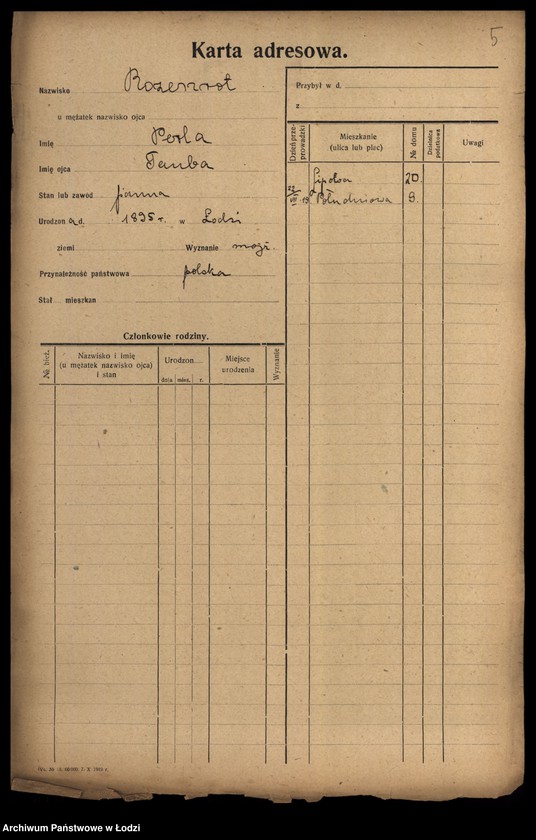 5
Karta adresowa.
Nazwisko Rozenrot
u mężatek nazwisko ojca
Imię Perla
Imię ojca Tauba
Stan lub zawód panna
Urodzon a d. 1895 r. w Łodzi
ziemi Wyznanie mojż.
Przynależność państwowa polska
Stał mieszkan
Przybył w d.
z
Dzień prze-prowadzki
Mieszkanie (ulica lub plac)
№ domu
Dzielnica podatkowa
Uwagi
Lipowa 20.
22/VIII 19 Południowa 9.
Członkowie rodziny.
№ bież.
Nazwisko i imię (u mężatek nazwisko ojca) i stan
Urodzon
dnia mies. r.
Miejsce urodzenia
Wyznanie
Archiwum Państwowe w Łodzi